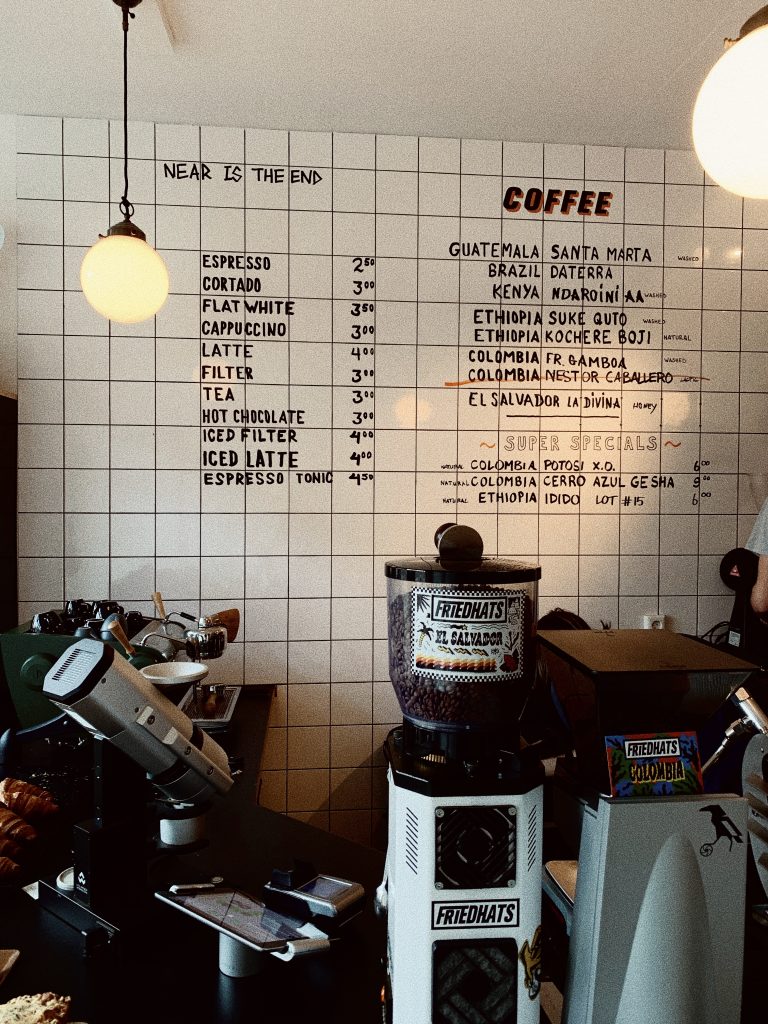 NEAR IS THE END
ESPRESSO 2⁵⁰
CORTADO 3⁰⁰
FLAT WHITE 3⁵⁰
CAPPUCCINO 3⁰⁰
LATTE 4⁰⁰
FILTER 3⁰⁰
TEA 3⁰⁰
HOT CHOCOLATE 3⁰⁰
ICED FILTER 4⁰⁰
ICED LATTE 4⁰⁰
ESPRESSO TONIC 4⁵⁰
COFFEE
GUATEMALA SANTA MARTA WASHED
BRAZIL DATERRA
KENYA NDAROINI AA WASHED
ETHIOPIA SUKE QUTO WASHED
ETHIOPIA KOCHERE BOJI NATURAL
COLOMBIA FR. GAMBOA WASHED
COLOMBIA NESTOR CABALLERO
EL SALVADOR LA DIVINA HONEY
~ SUPER SPECIALS ~
NATURAL COLOMBIA POTOSI X.O. 6⁰⁰
NATURAL COLOMBIA CERRO AZUL GESHA 9⁰⁰
NATURAL ETHIOPIA IDIDO LOT #15 6⁰⁰
FRIEDHATS
EL SALVADOR
FRIEDHATS
COLOMBIA
FRIEDHATS